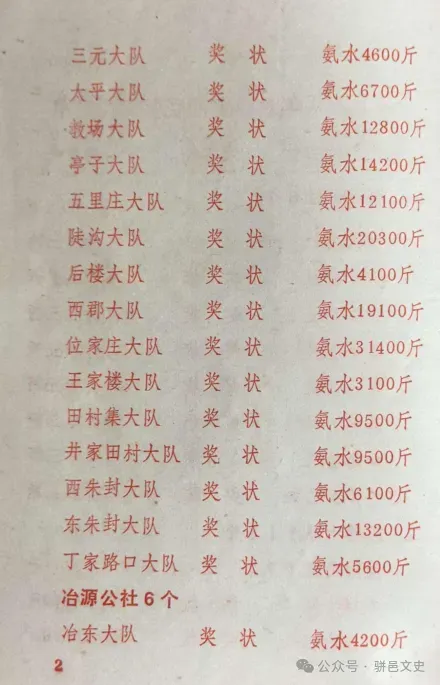 三元大队 奖 状 氨水4600斤
太平大队 奖 状 氨水6700斤
教场大队 奖 状 氨水12800斤
亭子大队 奖 状 氨水14200斤
五里庄大队 奖 状 氨水12100斤
陡沟大队 奖 状 氨水20300斤
后楼大队 奖 状 氨水4100斤
西郡大队 奖 状 氨水19100斤
位家庄大队 奖 状 氨水31400斤
王家楼大队 奖 状 氨水3100斤
田村集大队 奖 状 氨水9500斤
井家田村大队 奖 状 氨水9500斤
西朱封大队 奖 状 氨水6100斤
东朱封大队 奖 状 氨水13200斤
丁家路口大队 奖 状 氨水5600斤
冶源公社6个
冶东大队 奖 状 氨水4200斤
2
公众号·骈邑文史